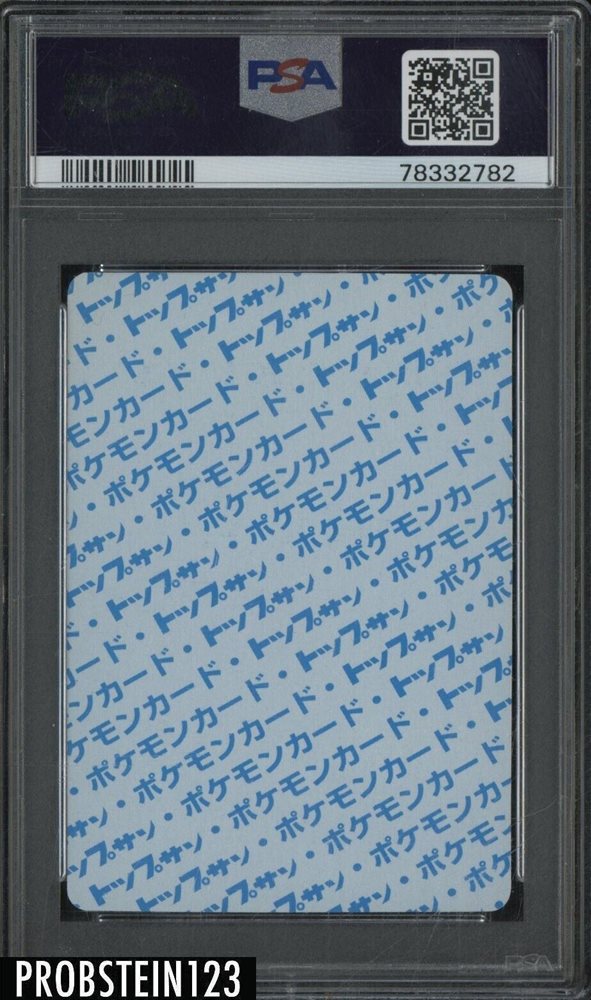 PSA
78332782
トップサン
ド・トップサン・
カード・トップサン・ポケ
モンカード・トップサン・ポ
ポケモンカード・トップサン・
・ポケモンカード・トップサン
サン・ポケモンカード・トップ
トップサン・ポケモンカード・
・トップサン・ポケモンカード
ード・トップサン・ポケモン
ンカード・トップサン・ポケ
ケモンカード・トップサン・ポ
・ポケモンカード・トップサン
サン・ポケモンカード・トッ
トップサン・ポケモンカード
トップサン・ポケモンカー
トップサン・ポケモン
PSA
PROBSTEIN123